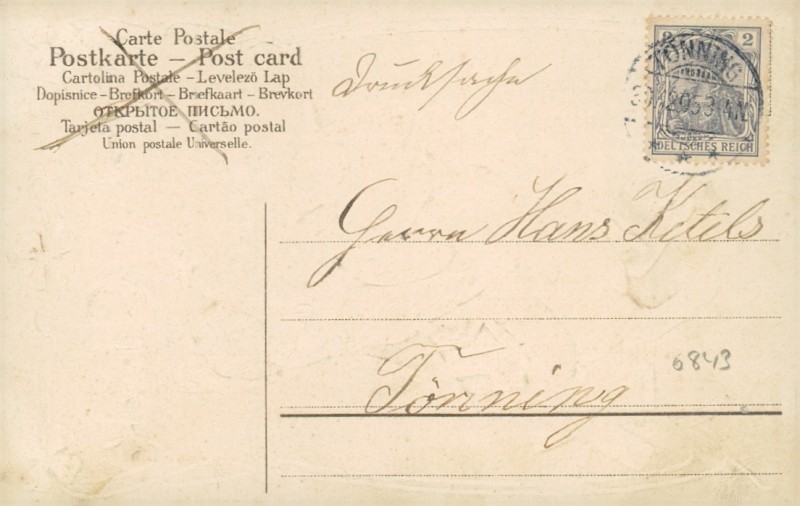 Carte Postale
Postkarte – Post card
Cartolina Postale – Levelező Lap
Dopisnice – Brefkort – Briefkaart – Brevkort
ОТКРЫТОЕ ПИСЬМО.
Tarjeta postal — Cartão postal
Union postale Universelle.
Drucksache
2 2
DEUTSCHES REICH
TÖNNING
Herrn Hans Ketels
6843
Tönning